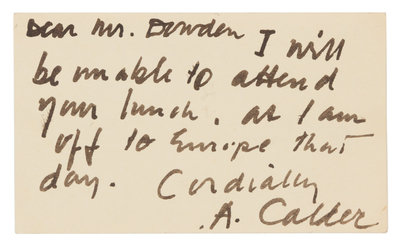 Dear Mr. Dowden I will
be unable to attend
your lunch, as I am
off to Europe that
day. Cordially
A. Calder